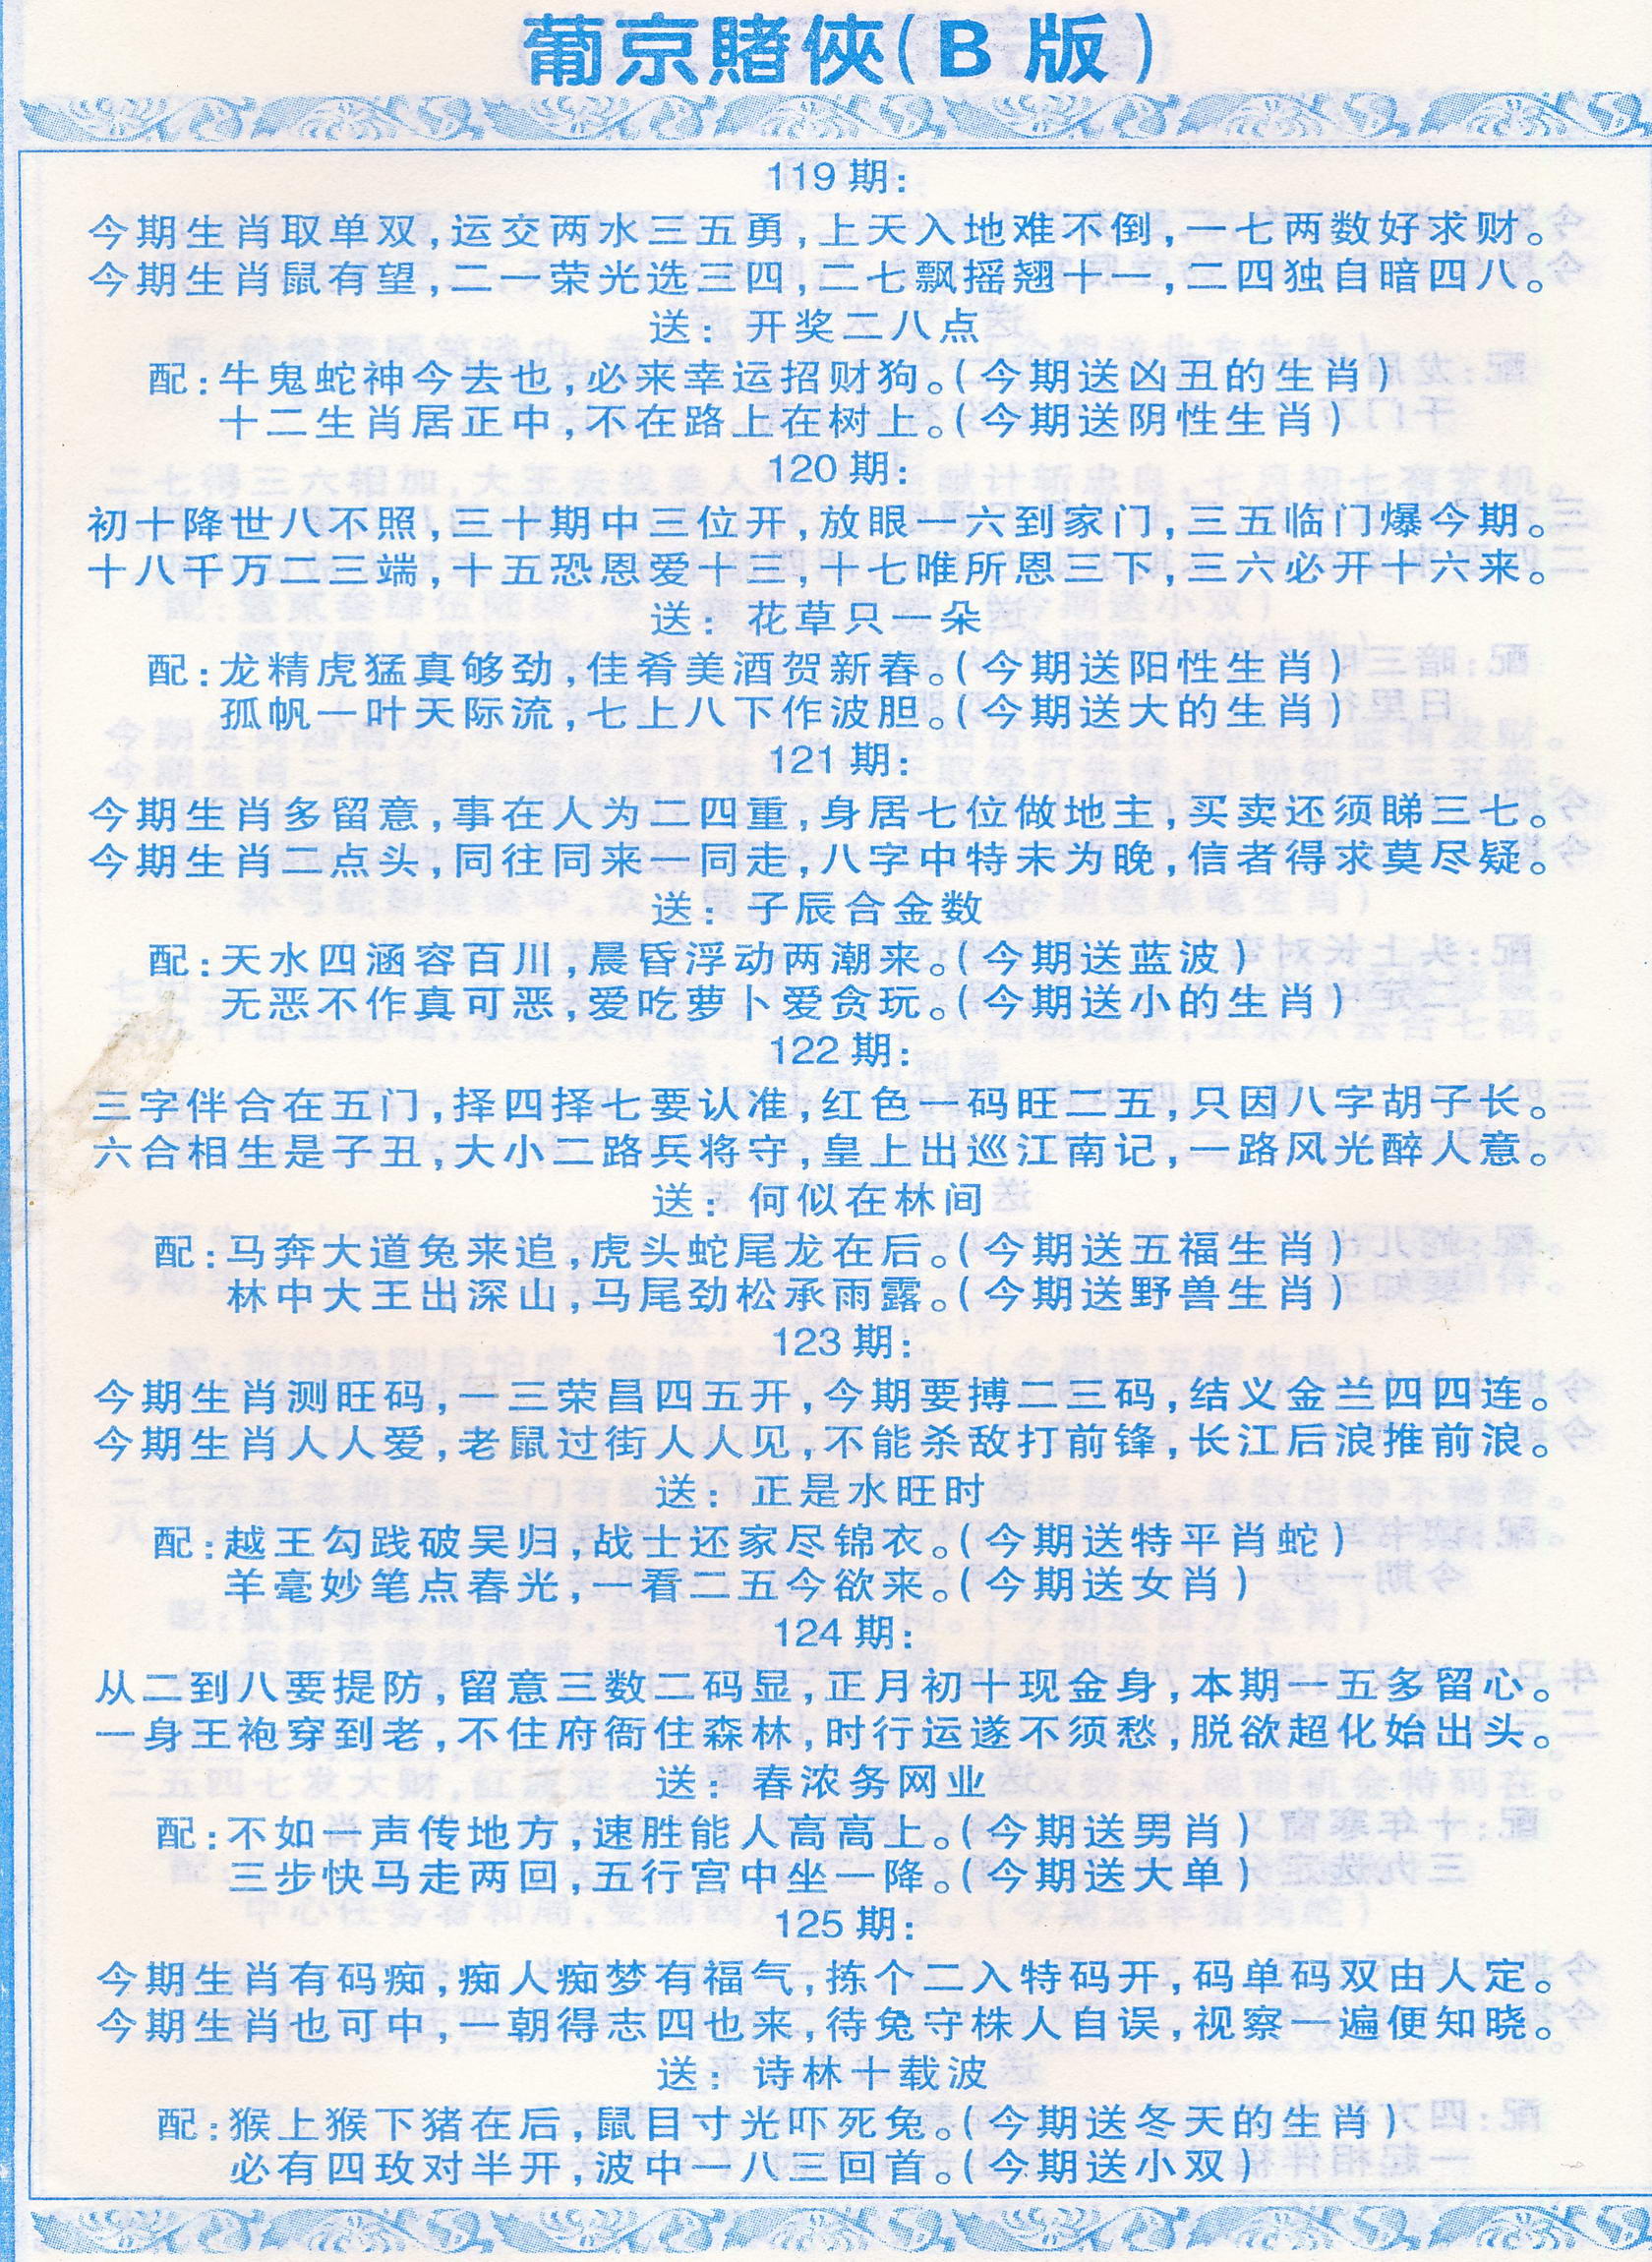 葡京賭俠(B版)
119期:
今期生肖取单双,运交两水三五勇,上天入地难不倒,一七两数好求财。
今期生肖鼠有望,二一荣光选三四,二七飘摇翘十一,二四独自暗四八。
送: 开奖二八点
配:牛鬼蛇神今去也,必来幸运招财狗。(今期送凶丑的生肖)
十二生肖居正中,不在路上在树上。(今期送阴性生肖)
120期:
初十降世八不照,三十期中三位开,放眼一六到家门,三五临门爆今期。
十八千万二三端,十五恐恩爱十三,十七唯所恩三下,三六必开十六来。
送: 花草只一朵
配:龙精虎猛真够劲,佳肴美酒贺新春。(今期送阳性生肖)
孤帆一叶天际流,七上八下作波胆。(今期送大的生肖)
121期:
今期生肖多留意,事在人为二四重,身居七位做地主,买卖还须睇三七。
今期生肖二点头,同往同来一同走,八字中特未为晚,信者得求莫尽疑。
送: 子辰合金数
配:天水四涵容百川,晨昏浮动两潮来。(今期送蓝波)
无恶不作真可恶,爱吃萝卜爱贪玩。(今期送小的生肖)
122期:
三字伴合在五门,择四择七要认准,红色一码旺二五,只因八字胡子长。
六合相生是子丑,大小二路兵将守,皇上出巡江南记,一路风光醉人意。
送: 何似在林间
配:马奔大道兔来追,虎头蛇尾龙在后。(今期送五福生肖)
林中大王出深山,马尾劲松承雨露。(今期送野兽生肖)
123期:
今期生肖测旺码,一三荣昌四五开,今期要搏二三码,结义金兰四四连。
今期生肖人人爱,老鼠过街人人见,不能杀敌打前锋,长江后浪推前浪。
送: 正是水旺时
配:越王勾践破吴归,战士还家尽锦衣。(今期送特平肖蛇)
羊毫妙笔点春光,一看二五今欲来。(今期送女肖)
124期:
从二到八要提防,留意三数二码显,正月初十现金身,本期一五多留心。
一身王袍穿到老,不住府衙住森林,时行运遂不须愁,脱欲超化始出头。
送: 春浓务网业
配:不如一声传地方,速胜能人高高上。(今期送男肖)
三步快马走两回,五行宫中坐一降。(今期送大单)
125期:
今期生肖有码痴,痴人痴梦有福气,拣个二入特码开,码单码双由人定。
今期生肖也可中,一朝得志四也来,待兔守株人自误,视察一遍便知晓。
送: 诗林十载波
配:猴上猴下猪在后,鼠目寸光吓死兔。(今期送冬天的生肖)
必有四玫对半开,波中一八三回首。(今期送小双)